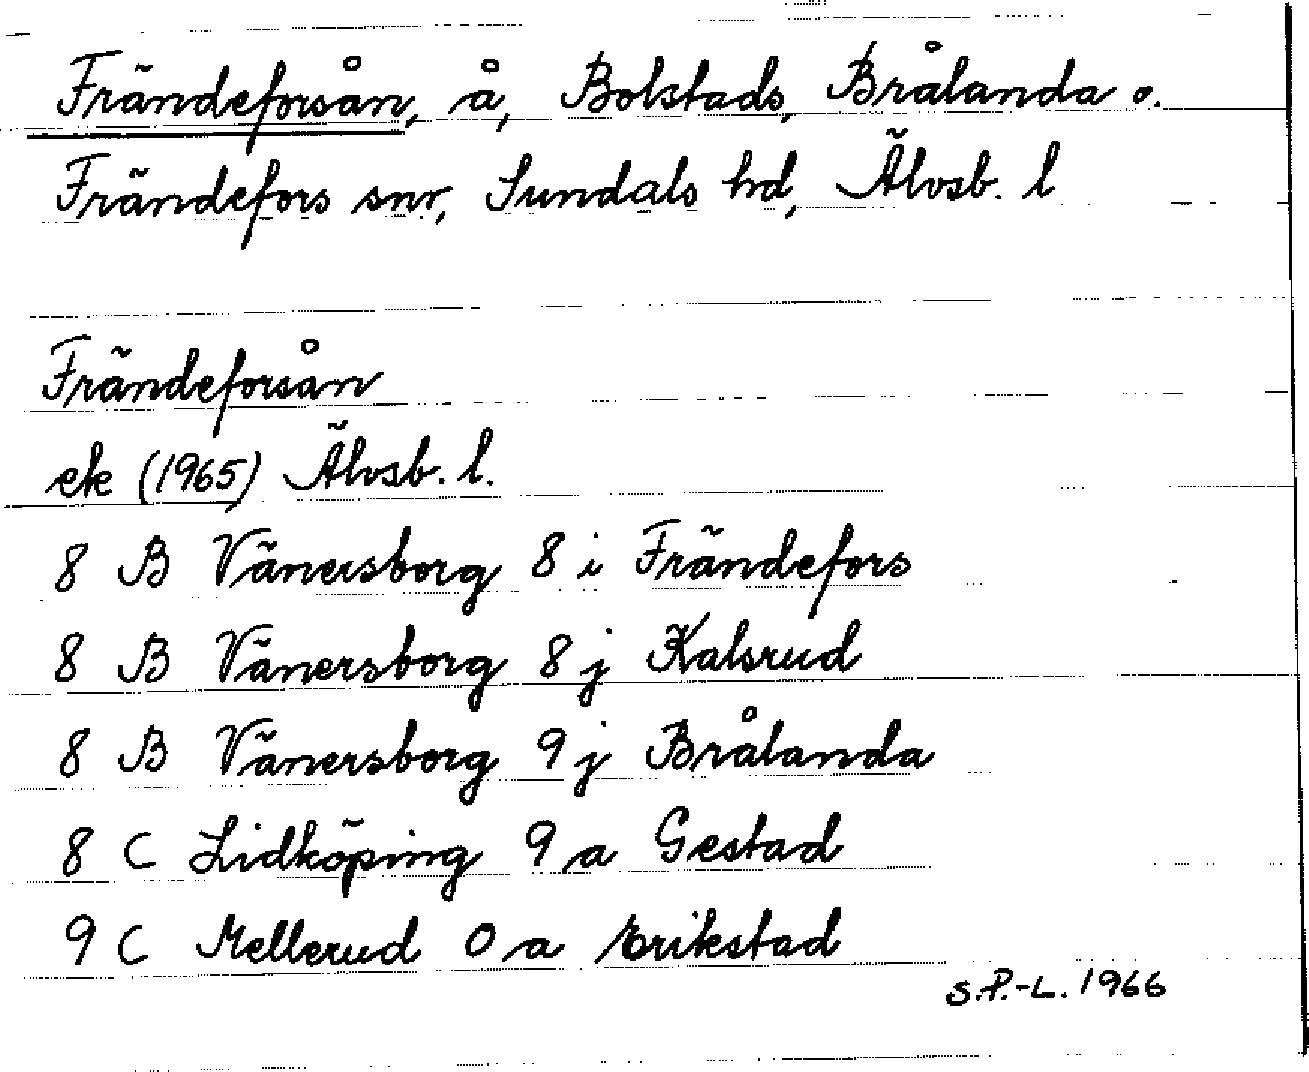 Frändeforsån, å, Bolstads, Brålanda o.
Frändefors snr, Sundals hd, Älvsb. l
Frändeforsån
ek (1965) Älvsb. l.
8 B Vänersborg 8 i Frändefors
8 B Vänersborg 8 j Kalsrud
8 B Vänersborg 9 j Brålanda
8 C Lidköping 9 a Gestad
9 C Mellerud 0 a Erikstad
S.P.-L. 1966